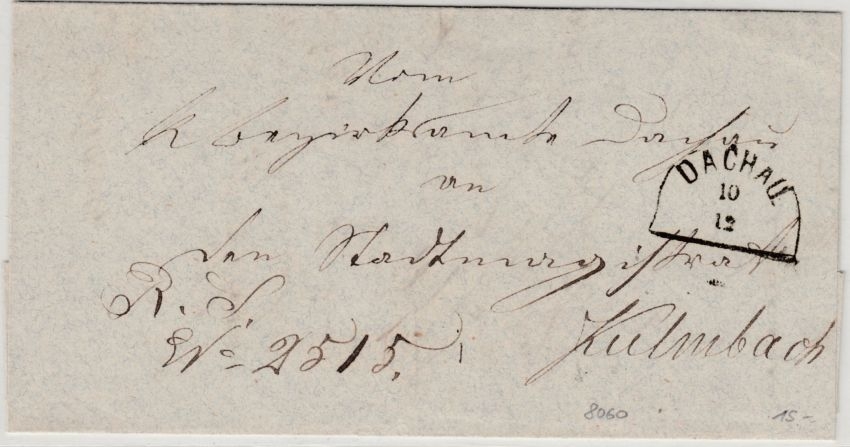 Vom
k Bezirksamte Dachau
an
den Stadtmagistrat
R. S.
No 2515.
Kulmbach
DACHAU.
10
12
8060
15-